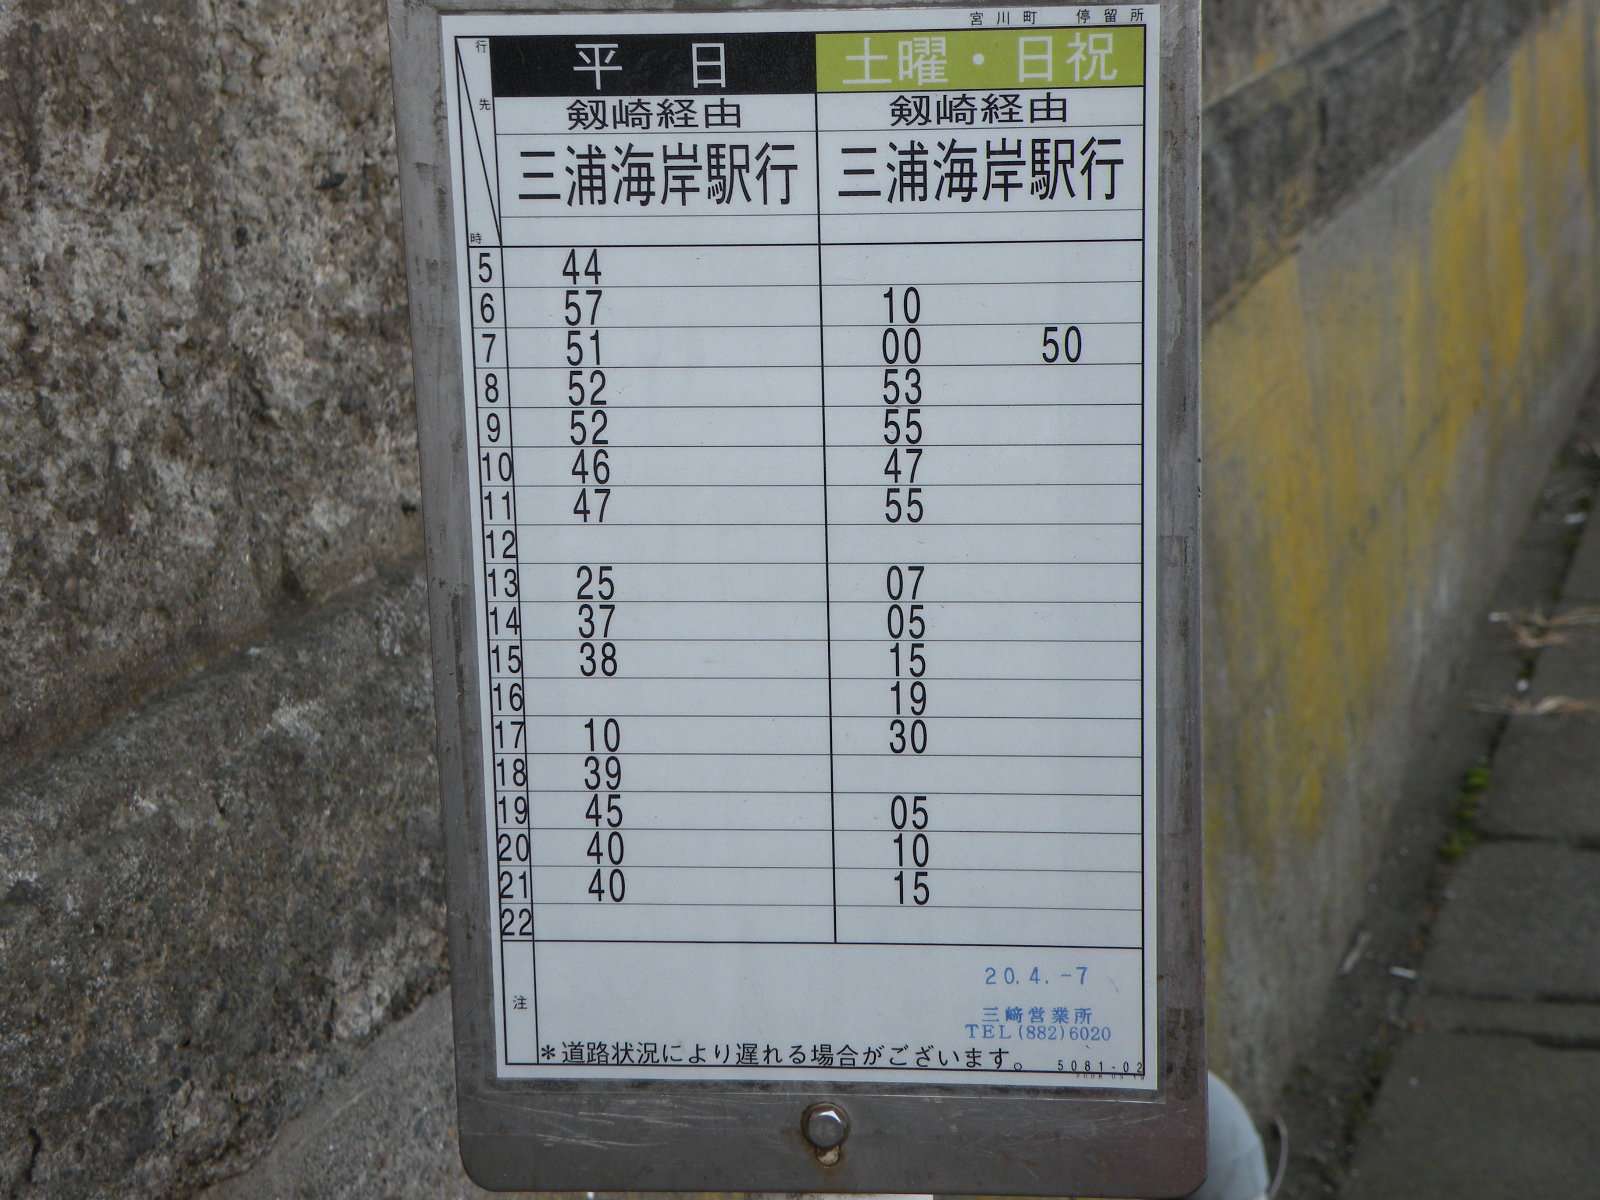 宮川町 停留所
行先 平日 土曜・日祝
剱崎経由 剱崎経由
三浦海岸駅行 三浦海岸駅行
時
5 44
6 57 10
7 51 00 50
8 52 53
9 52 55
10 46 47
11 47 55
12
13 25 07
14 37 05
15 38 15
16 19
17 10 30
18 39
19 45 05
20 40 10
21 40 15
22
注
20.4.-7
三崎営業所
TEL(882)6020
*道路状況により遅れる場合がございます。
5081-02